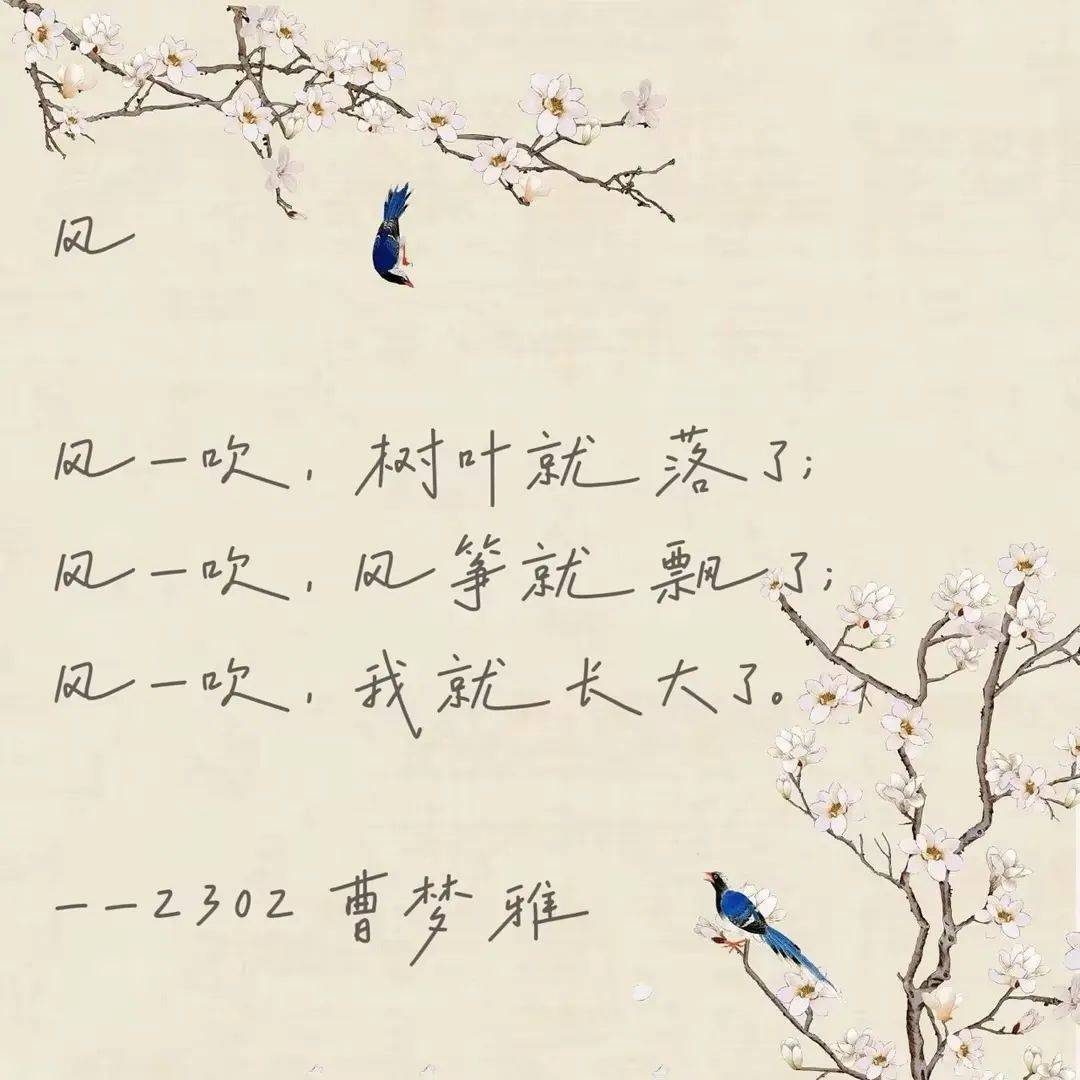 风
风一吹，树叶就落了；
风一吹，风筝就飘了；
风一吹，我就长大了。
--2302曹梦雅